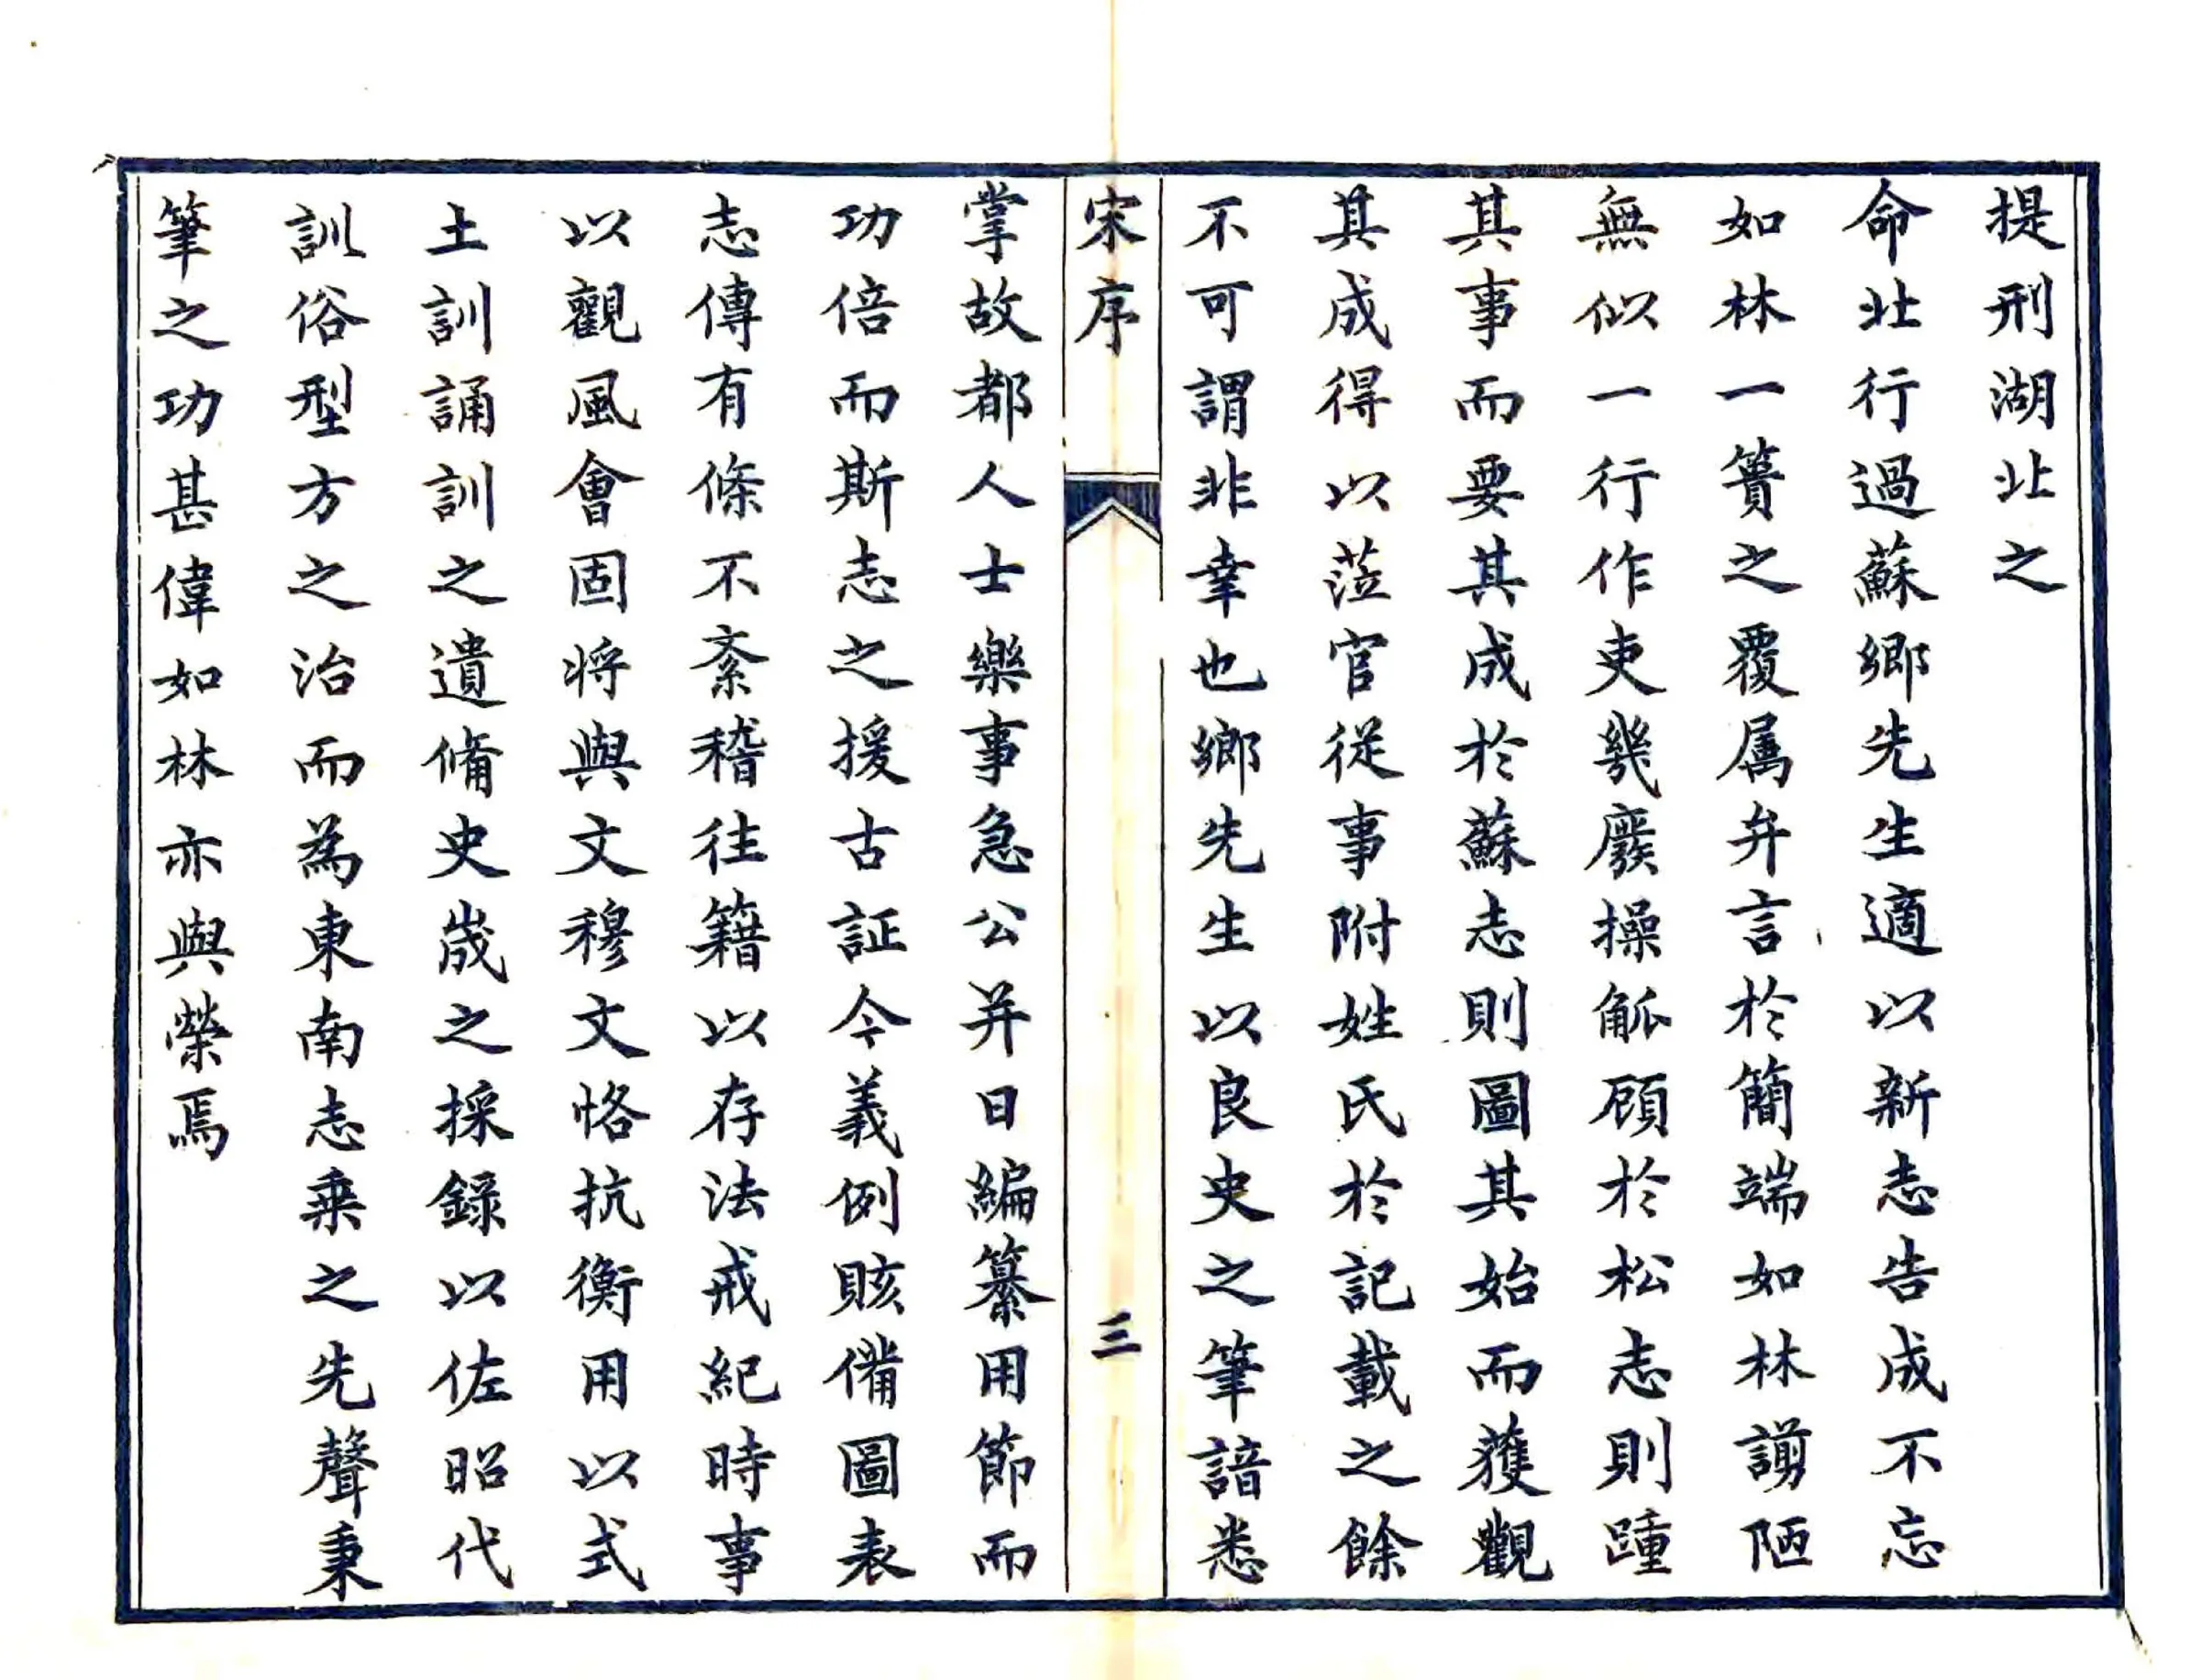 提刑湖北之
命北行過蘇鄉先生適以新志告成不忘
如林一簣之覆属弁言於簡端如林謭陋
無似一行作吏幾廢操觚顧於松志則踵
其事而要其成於蘇志則圖其始而獲觀
其成得以蒞官從事附姓氏於記載之餘
不可謂非幸也鄉先生以良史之筆諳悉
宋序
三
掌故都人士樂事急公并日編纂用節而
功倍而斯志之援古証今義例賅備圖表
志傳有條不紊稽往籍以存法戒紀時事
以觀風會固将與文穆文恪抗衡用以式
土訓誦訓之遺俻史宬之採録以佐昭代
訓俗型方之治而為東南志乗之先聲秉
筆之功甚偉如林亦與榮焉